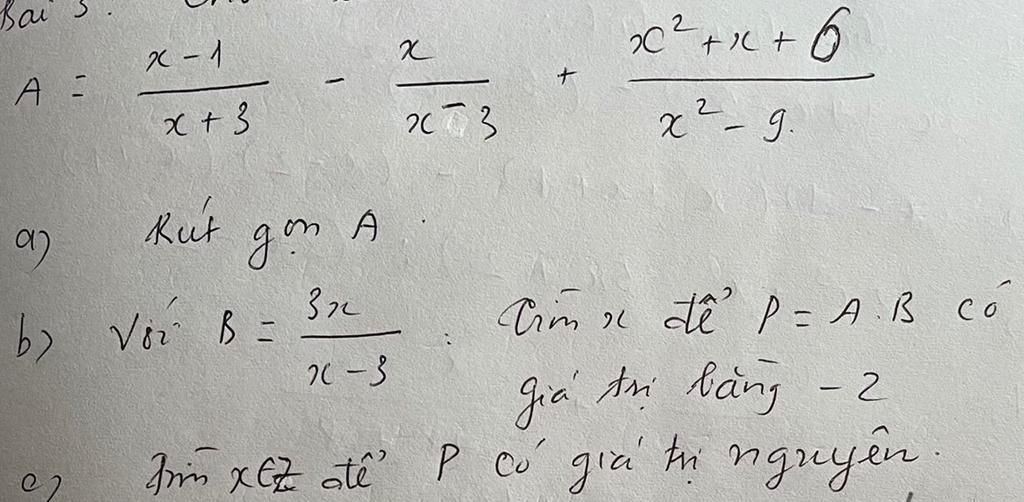 Bài 3.
A = \frac{x-1}{x+3} - \frac{x}{x-3} + \frac{x^2+x+6}{x^2-9}.
a) Rút gọn A.
b) Với B = \frac{3x}{x-3} : Tìm x để P = A.B có
giá trị bằng -2
c) Tìm x∈Z để P có giá trị nguyên.